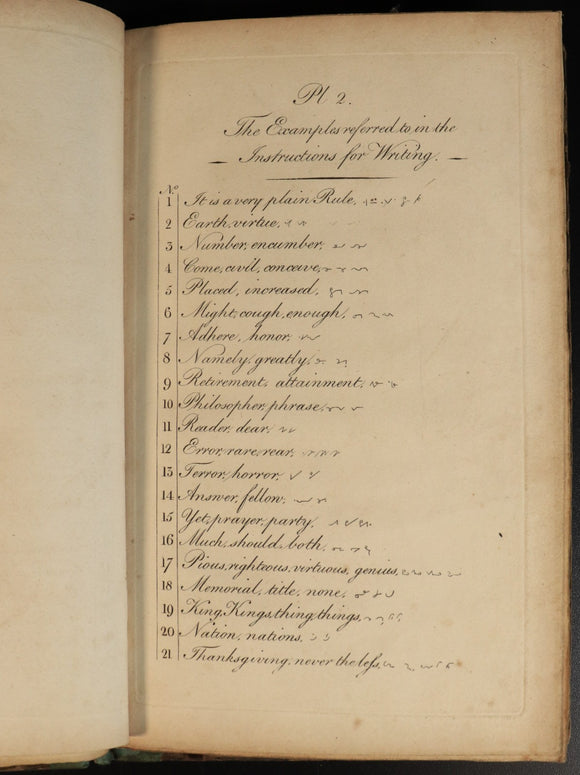 Pl 2.
The Examples referred to in the
Instructions for Writing.
No
1 It is a very plain Rule,
2 Earth, virtue,
3 Number, encumber,
4 Come, civil, conceive,
5 Placed, increased,
6 Might, cough, enough,
7 Adhere, honor,
8 Namely, greatly,
9 Retirement, attainment,
10 Philosopher, phrase,
11 Reader, dear,
12 Error, rare, rear,
13 Terror, horror,
14 Answer, fellow,
15 Yet, prayer, party,
16 Much, should, both,
17 Pious, righteous, virtuous, genius,
18 Memorial, title, none,
19 King, Kings, thing, things,
20 Nation, nations,
21 Thanksgiving, never the less,